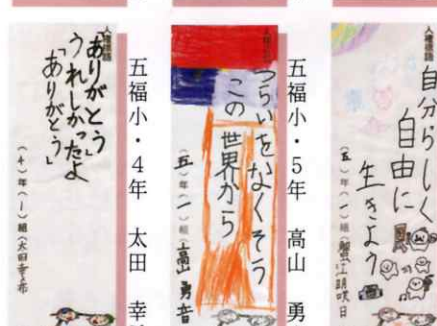 人権標語
自分らしく
自由に
生きよう
(五)年(一)組(蟹江明咲日)
五福小・5年 高山 勇
つらいをなくそう
この世界から
(五)年(一)組(高山勇音)
五福小・4年 太田 幸
人権標語
「ありがとう」
うれしかったよ
「ありがとう」
(4)年(1)組(太田幸乃布)